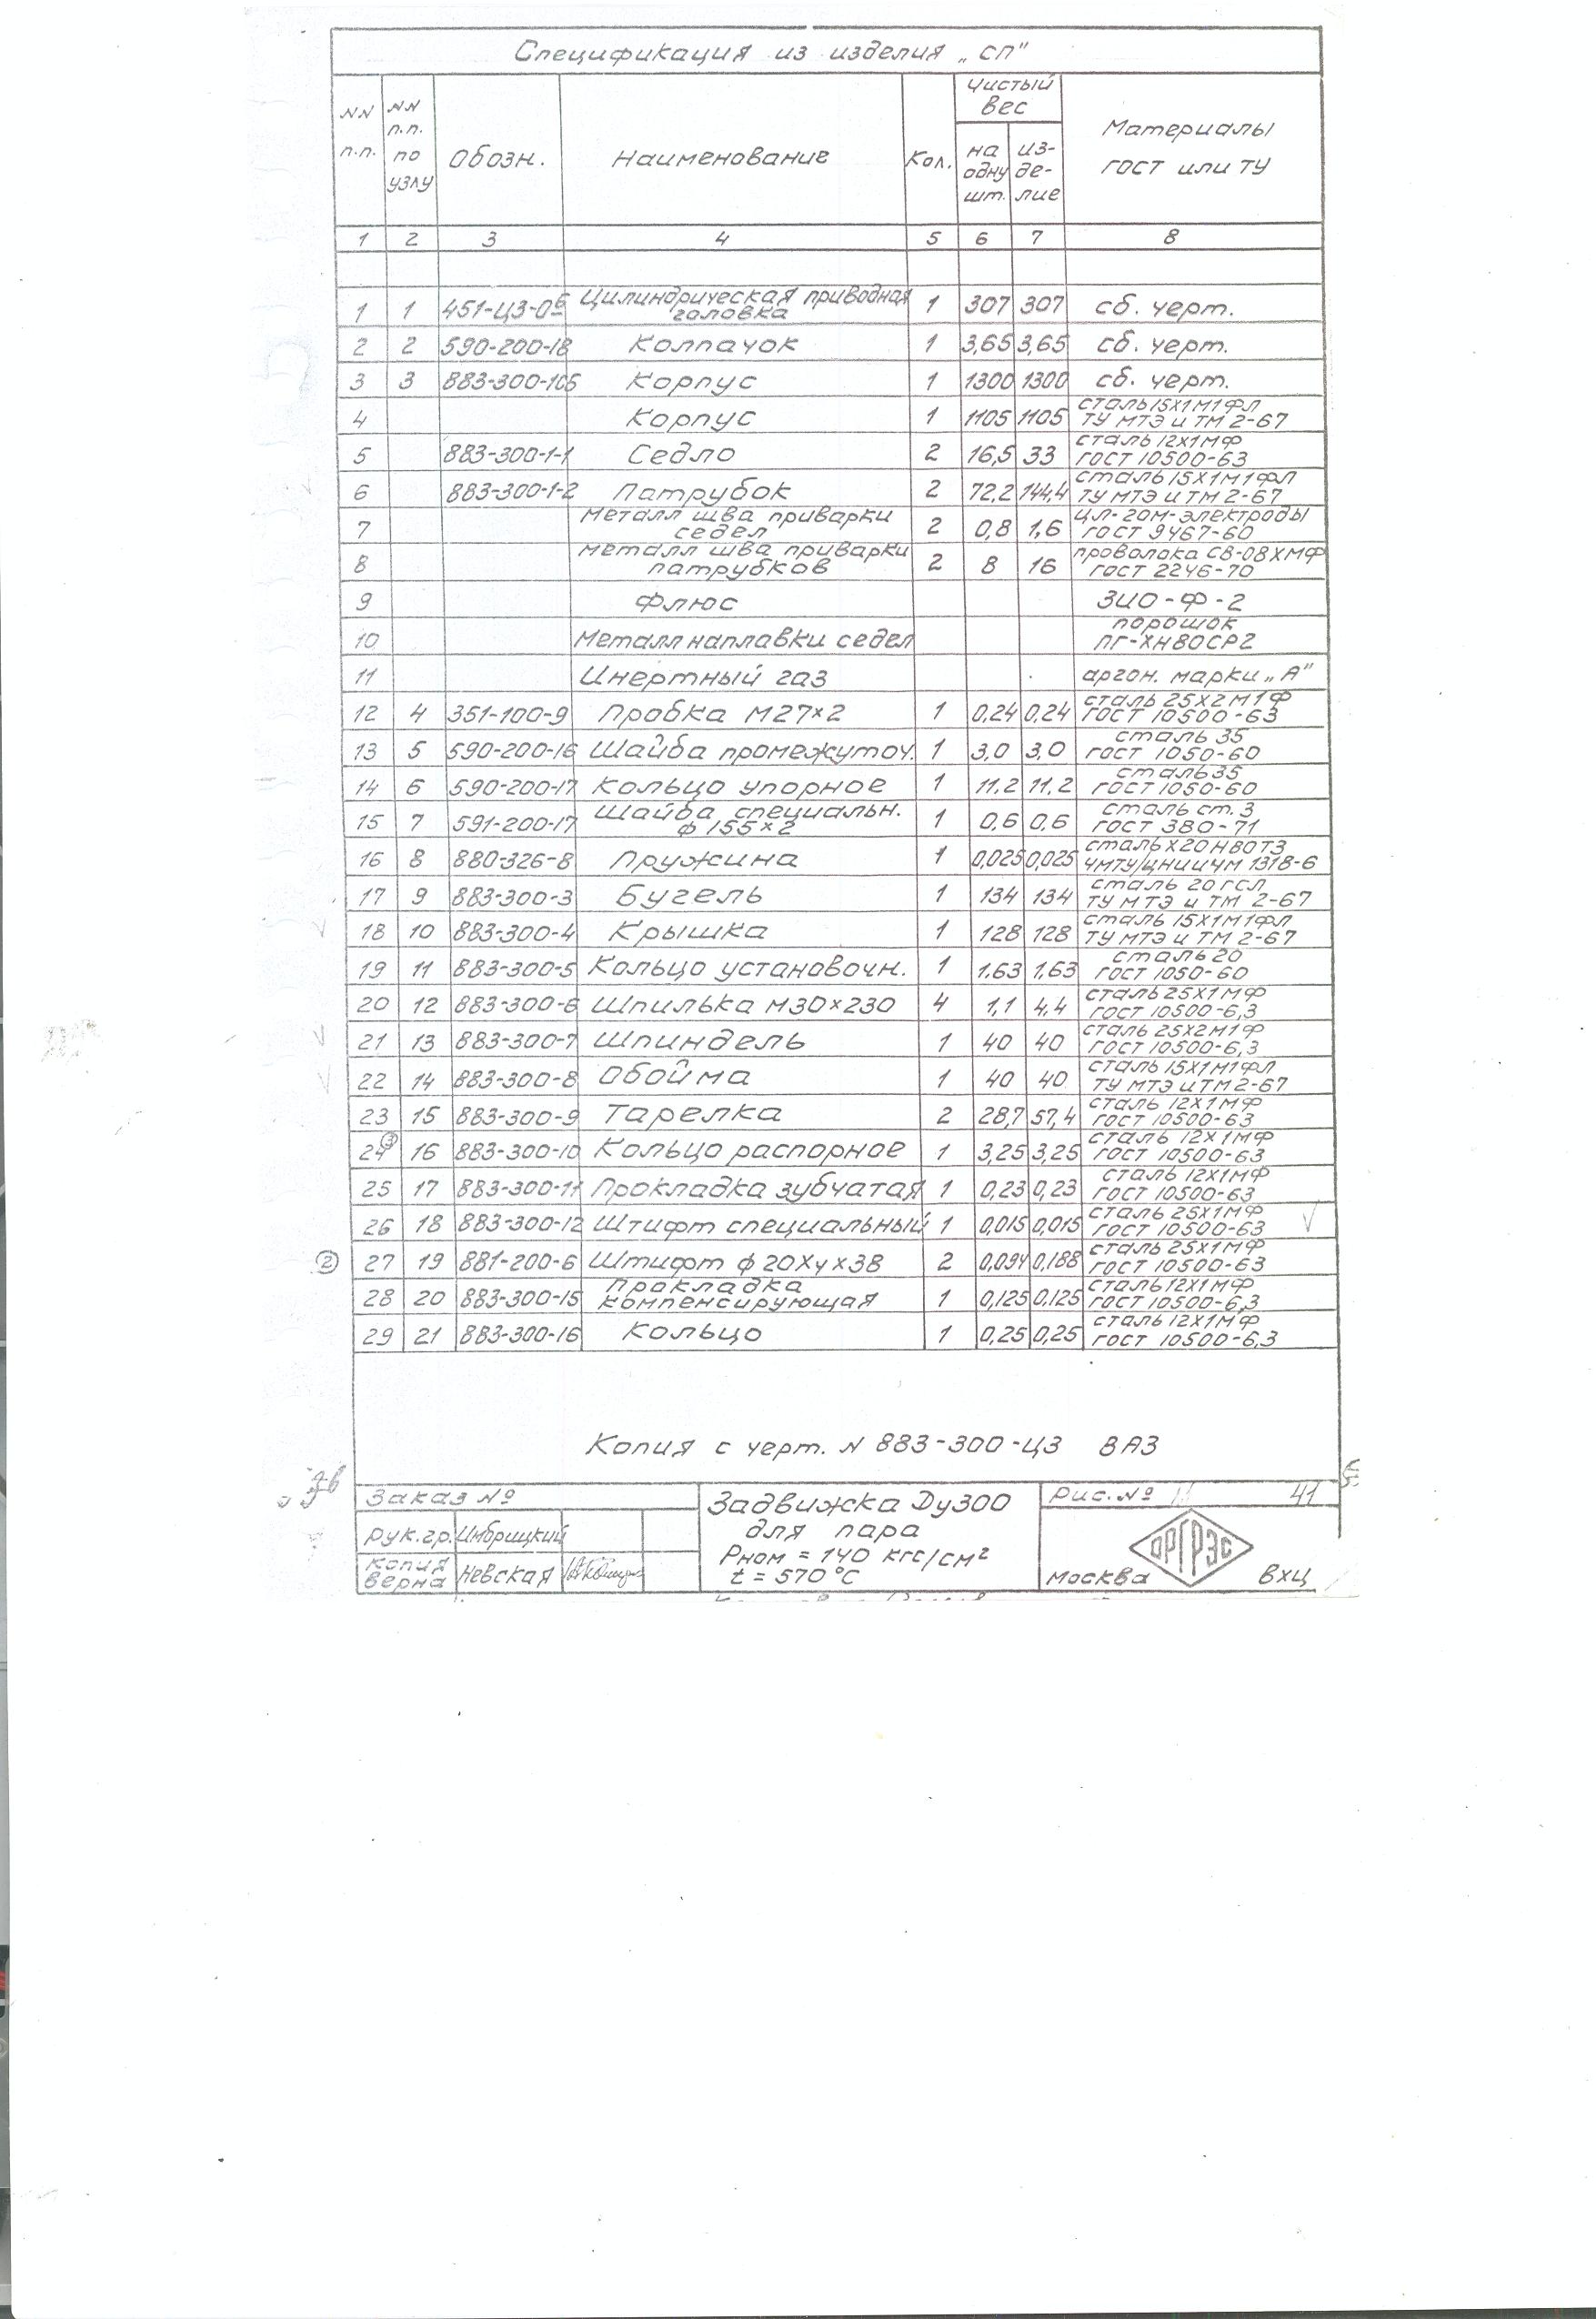 Спецификация из изделия „СП"
NN п.п. NN п.п. по узлу Обозн. Наименование Кол. Чистый вес на одну шт. из-де-лие Материалы ГОСТ или ТУ
1 2 3 4 5 6 7 8
1 1 451-ЦЗ-0б Цилиндрическая приводная головка 1 307 307 сб. черт.
2 2 590-200-18 Колпачок 1 3,65 3,65 сб. черт.
3 3 883-300-1сб Корпус 1 1300 1300 сб. черт.
4 Корпус 1 1105 1105 сталь 15Х1М1ФЛ ТУ МТЭ и ТМ 2-67
5 883-300-1-1 Седло 2 16,5 33 сталь 12Х1МФ ГОСТ 10500-63
6 883-300-1-2 Патрубок 2 72,2 144,4 сталь 15Х1М1ФЛ ТУ МТЭ и ТМ 2-67
7 Металл шва приварки седел 2 0,8 1,6 ЦЛ-20М-электроды ГОСТ 9467-60
8 Металл шва приварки патрубков 2 8 16 проволока СВ-08ХМФ ГОСТ 2246-70
9 Флюс ЗИО-Ф-2
10 Металл наплавки седел порошок ПГ-ХН80СР2
11 Инертный газ аргон. марки „А"
12 4 351-100-9 Пробка М27×2 1 0,24 0,24 сталь 25Х2М1Ф ГОСТ 10500-63
13 5 590-200-16 Шайба промежуточ. 1 3,0 3,0 сталь 35 ГОСТ 1050-60
14 6 590-200-17 Кольцо упорное 1 11,2 11,2 сталь 35 ГОСТ 1050-60
15 7 591-200-17 Шайба специальн. ф 155×2 1 0,6 0,6 сталь ст. 3 ГОСТ 380-71
16 8 880-326-8 Пружина 1 0,025 0,025 сталь Х20Н80Т3 ЧМТУ/ЦНИИЧМ 1318-6
17 9 883-300-3 Бугель 1 134 134 сталь 20 ГСЛ ТУ МТЭ и ТМ 2-67
18 10 883-300-4 Крышка 1 128 128 сталь 15Х1М1ФЛ ТУ МТЭ и ТМ 2-67
19 11 883-300-5 Кольцо установочн. 1 1.63 1,63 сталь 20 ГОСТ 1050-60
20 12 883-300-6 Шпилька М30×230 4 1,1 4,4 сталь 25Х1МФ ГОСТ 10500-6,3
21 13 883-300-7 Шпиндель 1 40 40 сталь 25Х2М1Ф ГОСТ 10500-6,3
22 14 883-300-8 Обойма 1 40 40 сталь 15Х1М1ФЛ ТУ МТЭ и ТМ 2-67
23 15 883-300-9 Тарелка 2 28,7 57,4 сталь 12Х1МФ ГОСТ 10500-63
24 ③ 16 883-300-10 Кольцо распорное 1 3,25 3,25 сталь 12Х1МФ ГОСТ 10500-63
25 17 883-300-11 Прокладка зубчатая 1 0,23 0,23 сталь 12Х1МФ ГОСТ 10500-63
26 18 883-300-12 Штифт специальный 1 0,015 0,015 сталь 25Х1МФ ГОСТ 10500-63
② 27 19 881-200-6 Штифт ф 20Х4×38 2 0,094 0,188 сталь 25Х1МФ ГОСТ 10500-63
28 20 883-300-15 Прокладка компенсирующая 1 0,125 0,125 сталь 12Х1МФ ГОСТ 10500-6,3
29 21 883-300-16 Кольцо 1 0,25 0,25 сталь 12Х1МФ ГОСТ 10500-6,3
Копия с черт. N 883-300-ЦЗ ВАЗ
Заказ №
Рук.гр. Имбрицкий
Копия верна Невская
Задвижка Ду300
для пара
Рном = 140 кгс/см²
t = 570 °С
Рис. № 41
ОРГРЭС
Москва ВХЦ